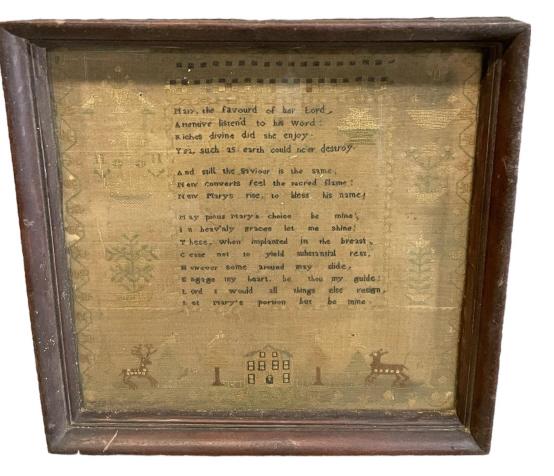 Mary, the favourd of her Lord,
Attentive listen'd to his Word:
Riches divine did she enjoy.
Yea, such as earth could ne'er destroy.
And still the Saviour is the same,
New converts feel the sacred flame!
New Marys rise, to bless his name!
May pious Mary's choice be mine!
In heav'nly graces let me shine!
These, when implanted in the breast,
Cease not to yield substantial rest,
However some around may slide,
Engage my heart, be thou my guide!
Lord I would all things else resign,
Let Mary's portion but be mine.